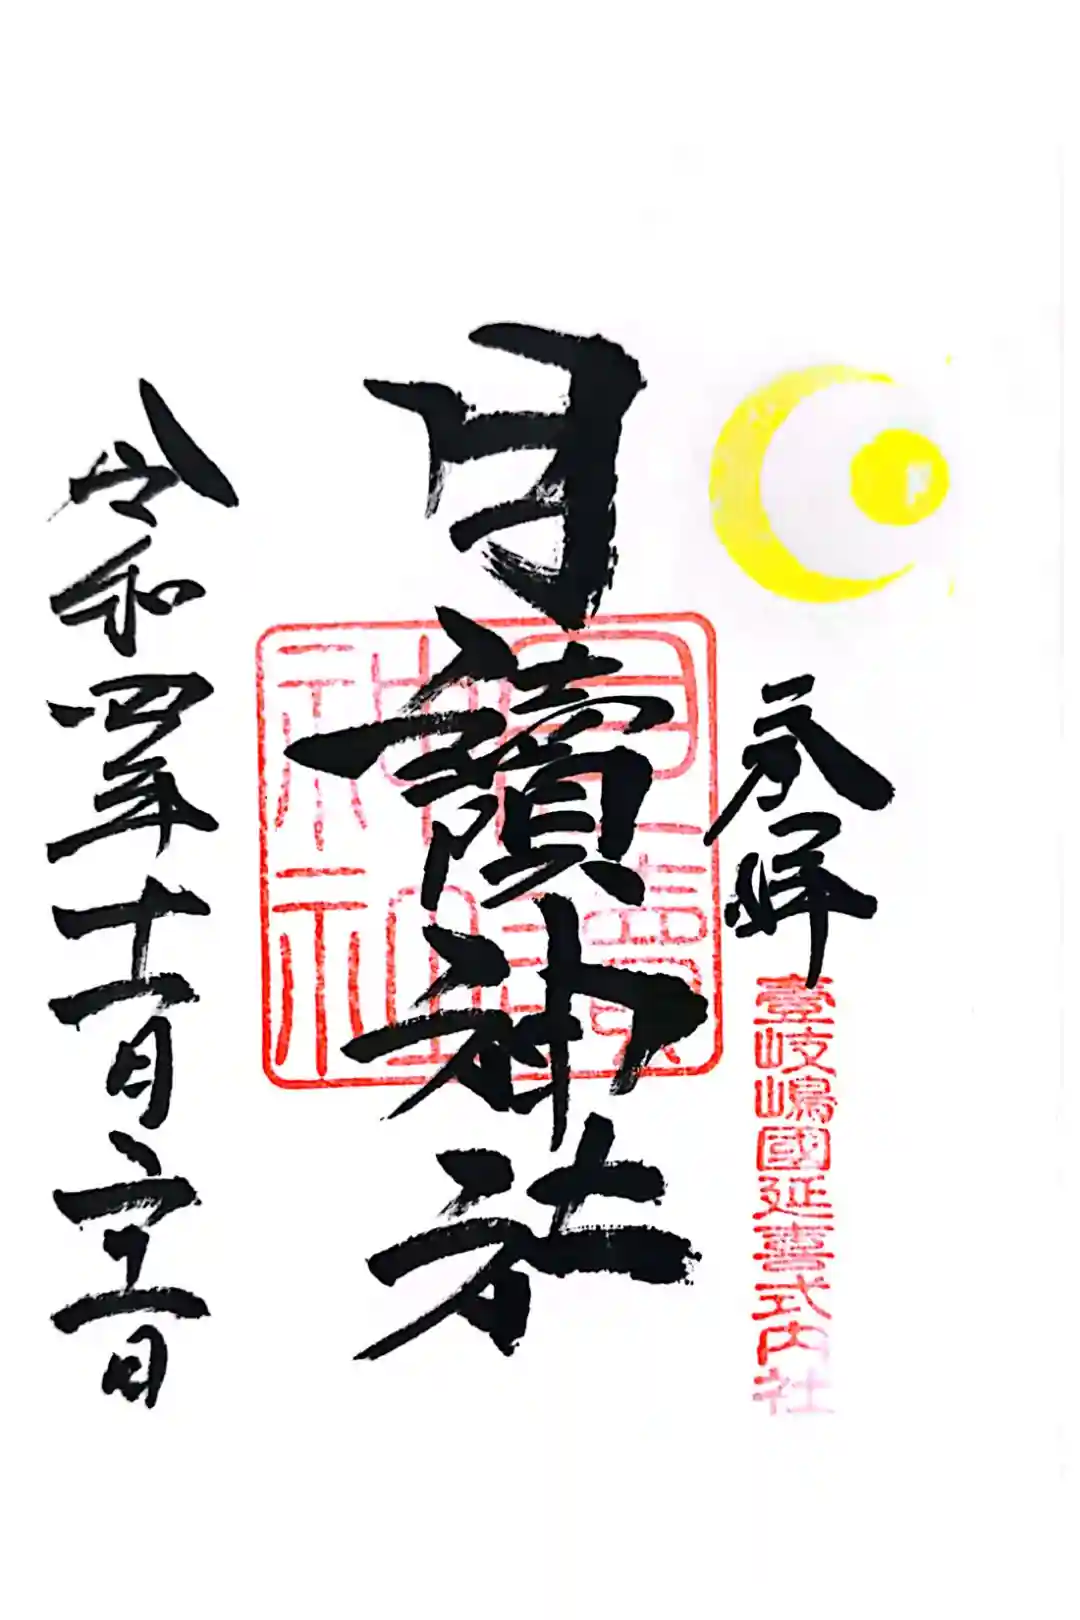 奉拝
壹岐嶋國延喜式内社
月讀神社
月讀
神社
令和四年十一月
日